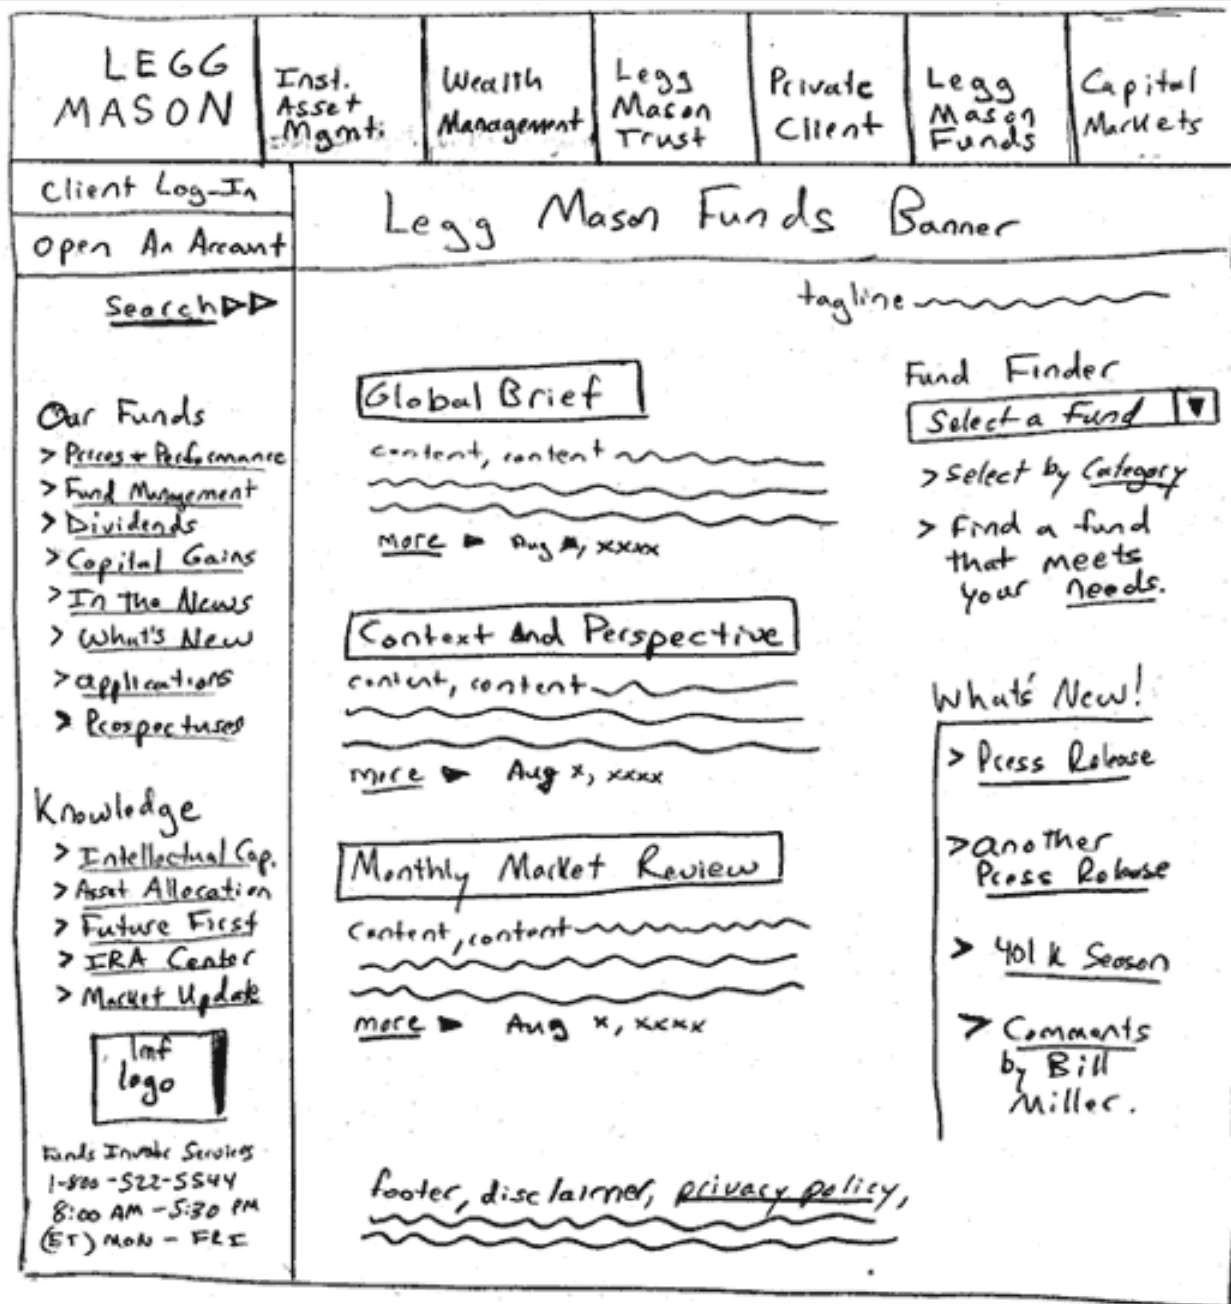 LEGG
MASON
Inst.
Asset
Mgmt.
Wealth
Management
Legg
Mason
Trust
Private
Client
Legg
Mason
Funds
Capital
Markets
Client Log-In
Open An Account
Search
Legg Mason Funds Banner
tagline
Our Funds
> Prices + Performance
> Fund Management
> Dividends
> Capital Gains
> In The News
> What's New
> applications
> Prospectuses
Knowledge
> Intellectual Cap.
> Asset Allocation
> Future First
> IRA Center
> Market Update
lmf
logo
Funds Services
1-800-522-5544
8:00 AM - 5:30 PM
(ET) MON - FRI
Global Brief
content, content
more ► Aug x, xxxx
Context And Perspective
content, content
more ► Aug x, xxxx
Monthly Market Review
Content, content
more ► Aug x, xxxx
Fund Finder
Select a Fund ▼
> Select by Category
> Find a fund
that meets
your needs.
What's New!
> Press Release
> another
Press Release
> 401k Season
> Comments
by Bill
Miller.
footer, disclaimer, privacy policy,